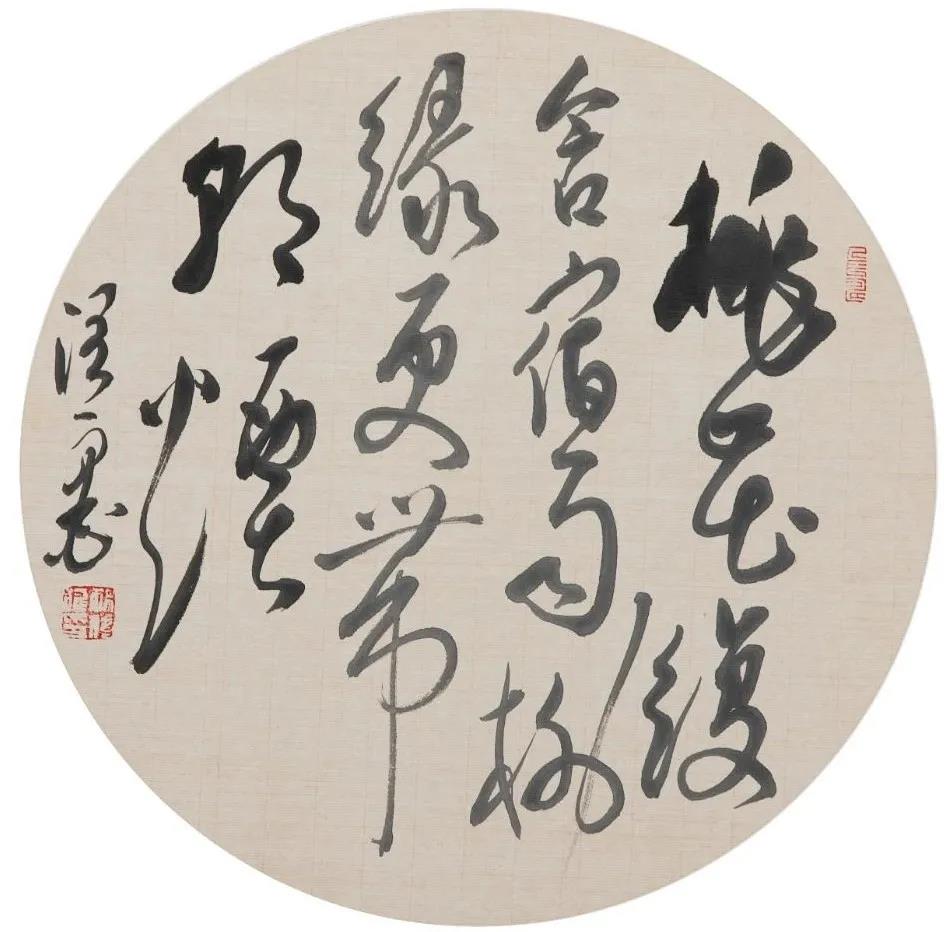 桃花復
含宿雨柳
緑更帶
朝煙